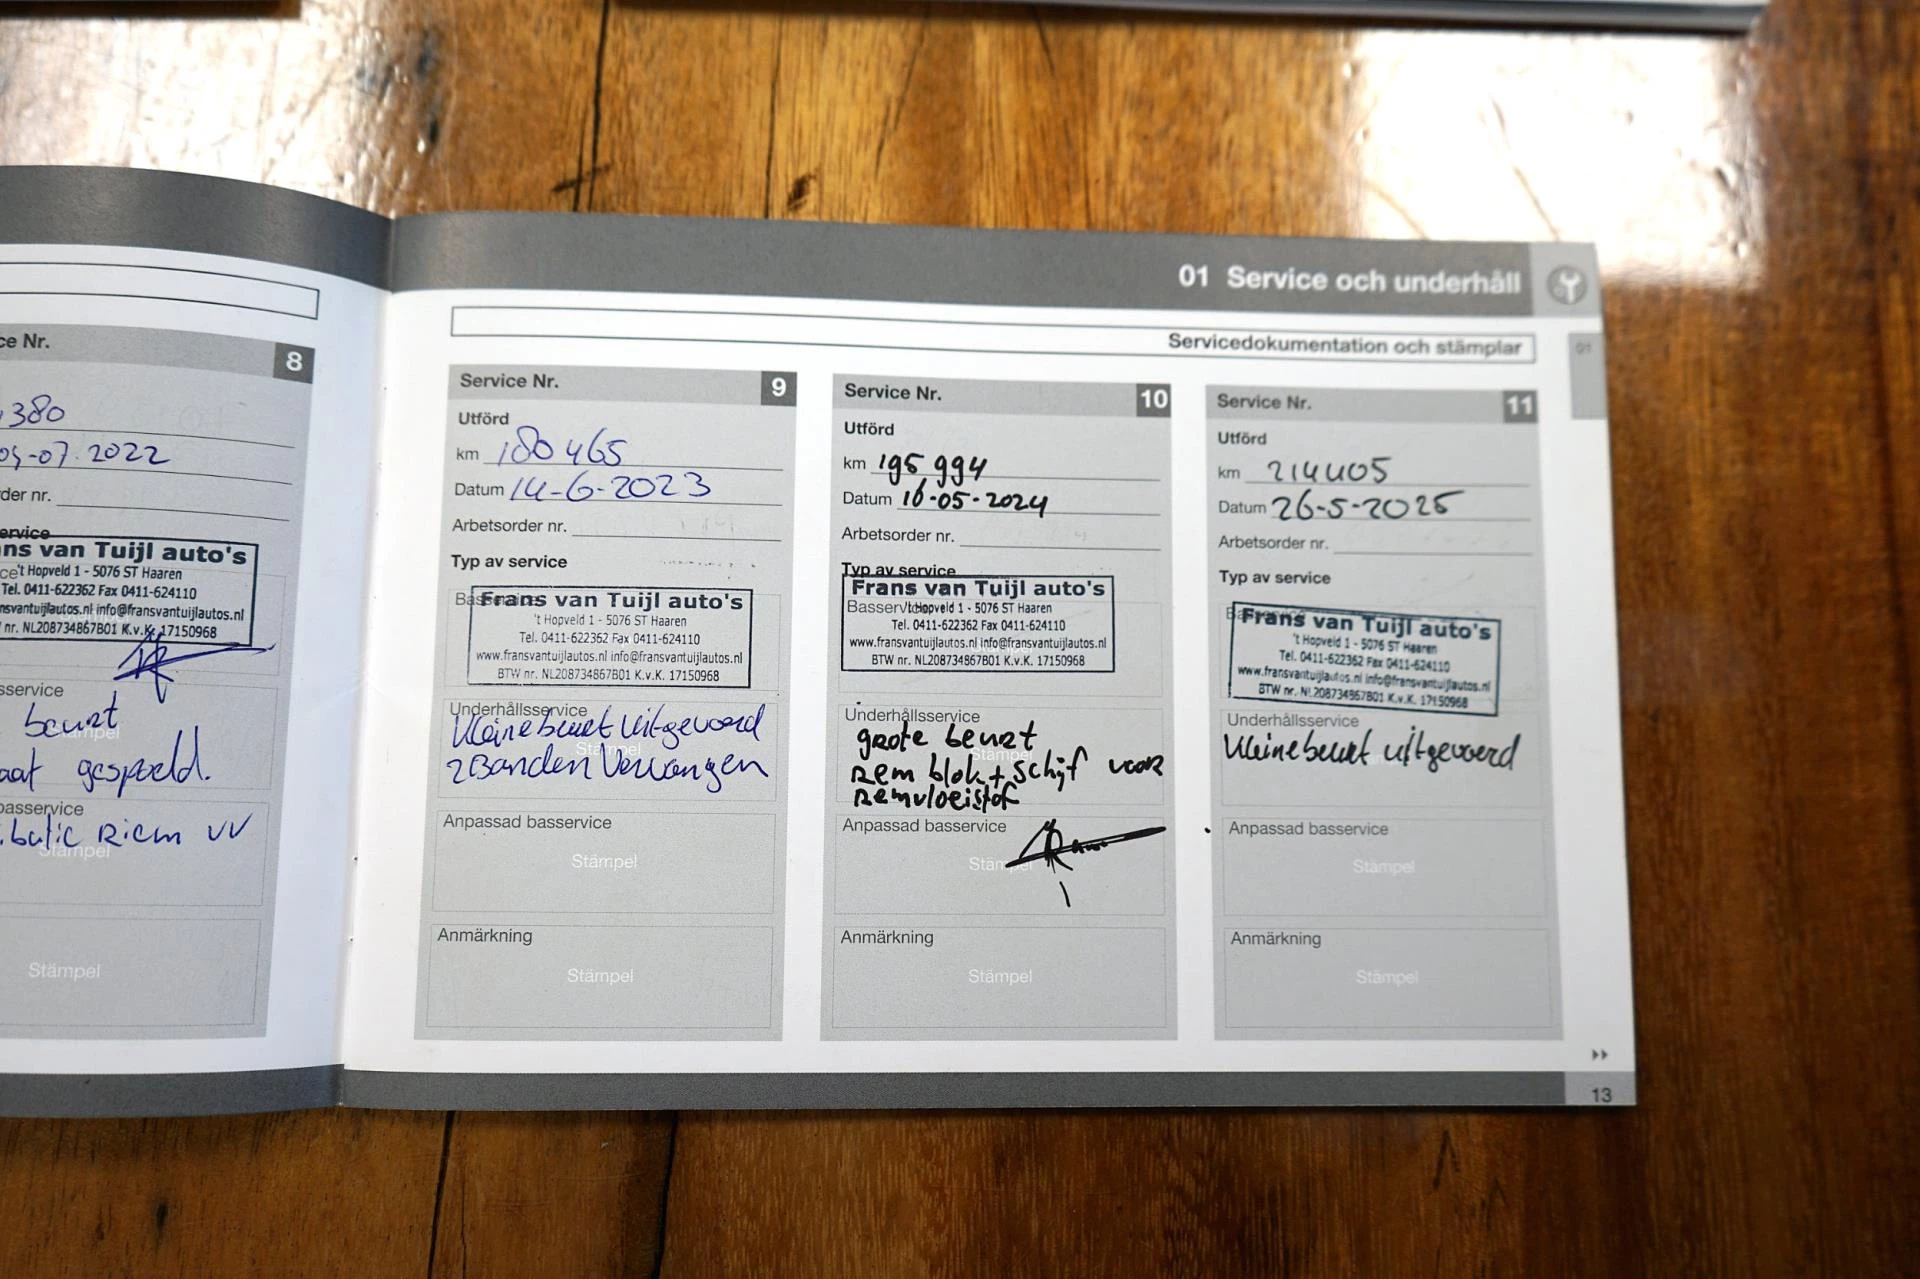 ce Nr. 8
380
-07-2022
der nr.
ervice
ns van Tuijl auto's
't Hopveld 1 - 5076 ST Haaren
Tel. 0411-622362 Fax 0411-624110
nsvantuijlautos.nl info@fransvantuijlautos.nl
nr. NL208734867B01 K.v.K. 17150968
sservice
beurt
aat gespoeld.
basservice
Riem VV
Stämpel
Stämpel
01 Service och underhåll
Servicedokumentation och stämplar
01
Service Nr. 9
Utförd
km 180465
Datum 14-6-2023
Arbetsorder nr.
Typ av service
Frans van Tuijl auto's
't Hopveld 1 - 5076 ST Haaren
Tel. 0411-622362 Fax 0411-624110
www.fransvantuijlautos.nl info@fransvantuijlautos.nl
BTW nr. NL208734867B01 K.v.K. 17150968
Underhållsservice
Kleine beurt uitgevoerd
Stämpel
2 Banden Vervangen
Anpassad basservice
Stämpel
Anmärkning
Stämpel
Service Nr. 10
Utförd
km 195 994
Datum 16-05-2024
Arbetsorder nr.
Typ av service
Frans van Tuijl auto's
Basservice
't Hopveld 1 - 5076 ST Haaren
Tel. 0411-622362 Fax 0411-624110
www.fransvantuijlautos.nl info@fransvantuijlautos.nl
BTW nr. NL208734867B01 K.v.K. 17150968
Underhållsservice
grote beurt
Stämpel
rem blok + schijf voor
remvloeistof
Anpassad basservice
Stämpel
Anmärkning
Stämpel
Service Nr. 11
Utförd
km 214405
Datum 26-5-2025
Arbetsorder nr.
Typ av service
Frans van Tuijl auto's
't Hopveld 1 - 5076 ST Haaren
Tel. 0411-622362 Fax 0411-624110
www.fransvantuijlautos.nl info@fransvantuijlautos.nl
BTW nr. NL208734867B01 K.v.K. 17150968
Underhållsservice
Kleine beurt uitgevoerd
Anpassad basservice
Stämpel
Anmärkning
Stämpel
13